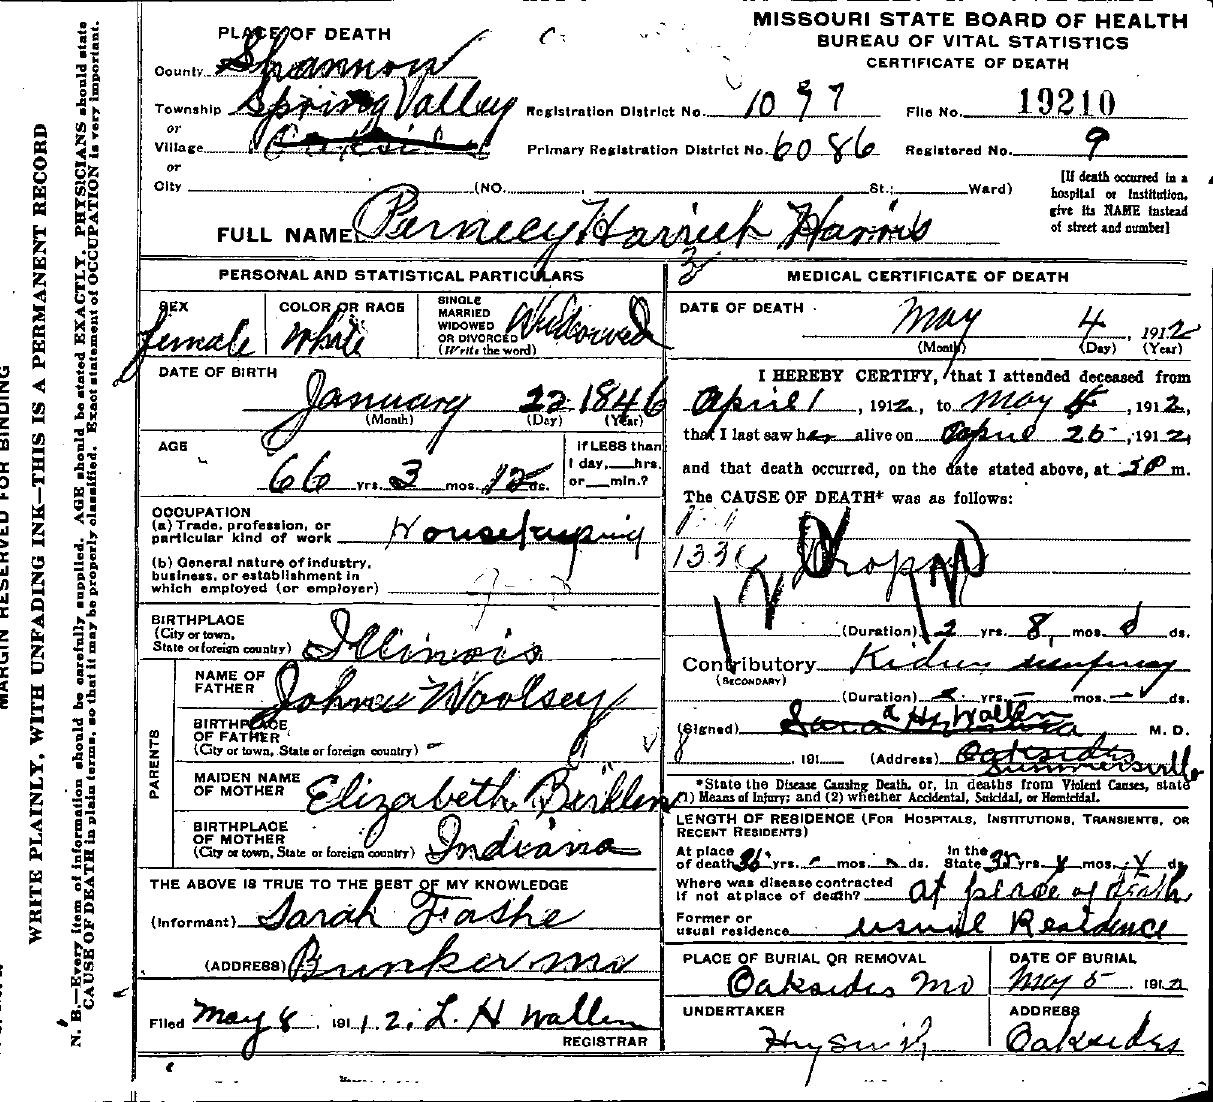 MISSOURI STATE BOARD OF HEALTH
BUREAU OF VITAL STATISTICS
CERTIFICATE OF DEATH
PLACE OF DEATH
County Shannon
Township Spring Valley
or
Village
or
City (NO. St.; Ward)
Registration District No. 1097
File No. 19210
Primary Registration District No. 6086
Registered No. 9
[If death occurred in a
hospital or institution,
give its NAME instead
of street and number]
FULL NAME Harris
PERSONAL AND STATISTICAL PARTICULARS
SEX
female
COLOR OR RACE
White
SINGLE
MARRIED
WIDOWED
OR DIVORCED
(Write the word)
Widowed
DATE OF BIRTH
January 22 1846
(Month) (Day) (Year)
AGE
66 yrs. 3 mos. 12 ds.
If LESS than
1 day, hrs.
or min.?
OCCUPATION
(a) Trade, profession, or
particular kind of work Housekeeping
(b) General nature of industry,
business, or establishment in
which employed (or employer)
BIRTHPLACE
(City or town,
State or foreign country) Illinois
PARENTS
NAME OF
FATHER Woolsey
BIRTHPLACE
OF FATHER
(City or town, State or foreign country) –
MAIDEN NAME
OF MOTHER Elizabeth
BIRTHPLACE
OF MOTHER
(City or town, State or foreign country) Indiana
THE ABOVE IS TRUE TO THE BEST OF MY KNOWLEDGE
(Informant) Sarah
(ADDRESS) Bunker Mo
Filed May 8, 1912. L. H Wallen
REGISTRAR
3
MEDICAL CERTIFICATE OF DEATH
DATE OF DEATH
May 4, 1912
(Month) (Day) (Year)
I HEREBY CERTIFY, that I attended deceased from
April 1, 1912, to May 4, 1912,
that I last saw her alive on April 26, 1912,
and that death occurred, on the date stated above, at 3 P m.
The CAUSE OF DEATH* was as follows:
Dropsy
(Duration) 2 yrs. 8 mos. ds.
Contributory
(SECONDARY)
(Duration) yrs. – mos. ds.
(Signed) L H Wallen M. D.
, 191 (Address) Oaksides
Summersville
*State the Disease Causing Death, or, in deaths from Violent Causes, state
(1) Means of Injury; and (2) whether Accidental, Suicidal, or Homicidal.
LENGTH OF RESIDENCE (FOR HOSPITALS, INSTITUTIONS, TRANSIENTS, OR
RECENT RESIDENTS)
At place
of death yrs. mos. ds.
In the
State yrs. mos. ds.
Where was disease contracted
if not at place of death? at place of death
Former or
usual residence usual Residence
PLACE OF BURIAL OR REMOVAL
Oaksides Mo
DATE OF BURIAL
May 5, 1912
UNDERTAKER
ADDRESS
Oaksides
MARGIN RESERVED FOR BINDING
WRITE PLAINLY, WITH UNFADING INK—THIS IS A PERMANENT RECORD
N. B.—Every item of information should be carefully supplied. AGE should be stated EXACTLY. PHYSICIANS should state
CAUSE OF DEATH in plain terms, so that it may be properly classified. Exact statement of OCCUPATION is very important.